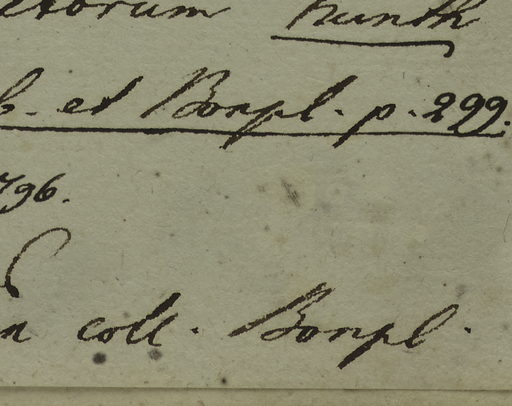 etorum Kunth
b. et Bonpl. p. 299.
796.
n coll. Bonpl.